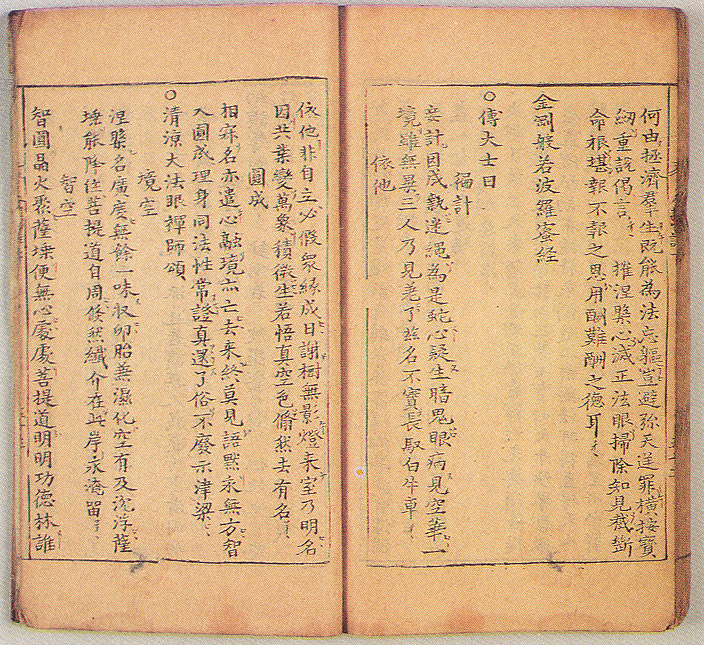 何由拯濟羣生既能為法忘軀豈避弥天逆罪橫按寶
劒重說偈言 摧涅槃心滅正法眼掃除知見截斷
命根堪報不報之恩用酬難酬之德耳
金剛般若波羅蜜經
○傅大士曰
徧計
妄計因成執迷繩為是虵心疑生暗鬼眼病見空華一
境雖無異三人乃見差了茲名不實長馭白牛車
依他
依他非自立必假衆緣成日謝樹無影燈来室乃明名
因共業變萬象積微生若悟真空色翛然去有名
圓成
相寂名亦遣心融境亦亡去来終莫見語默永無方智
入圓成理身同法性常證真還了俗不廢示津梁
○清涼大法眼禪師頌
境空
涅槃名廣度無餘一味收卵胎兼濕化空有及沉浮薩
埵能降住菩提道自周倐然纖介在此岸永淹留
智空
智圓晶火聚薩埵便無心處處菩提道明明功德林誰